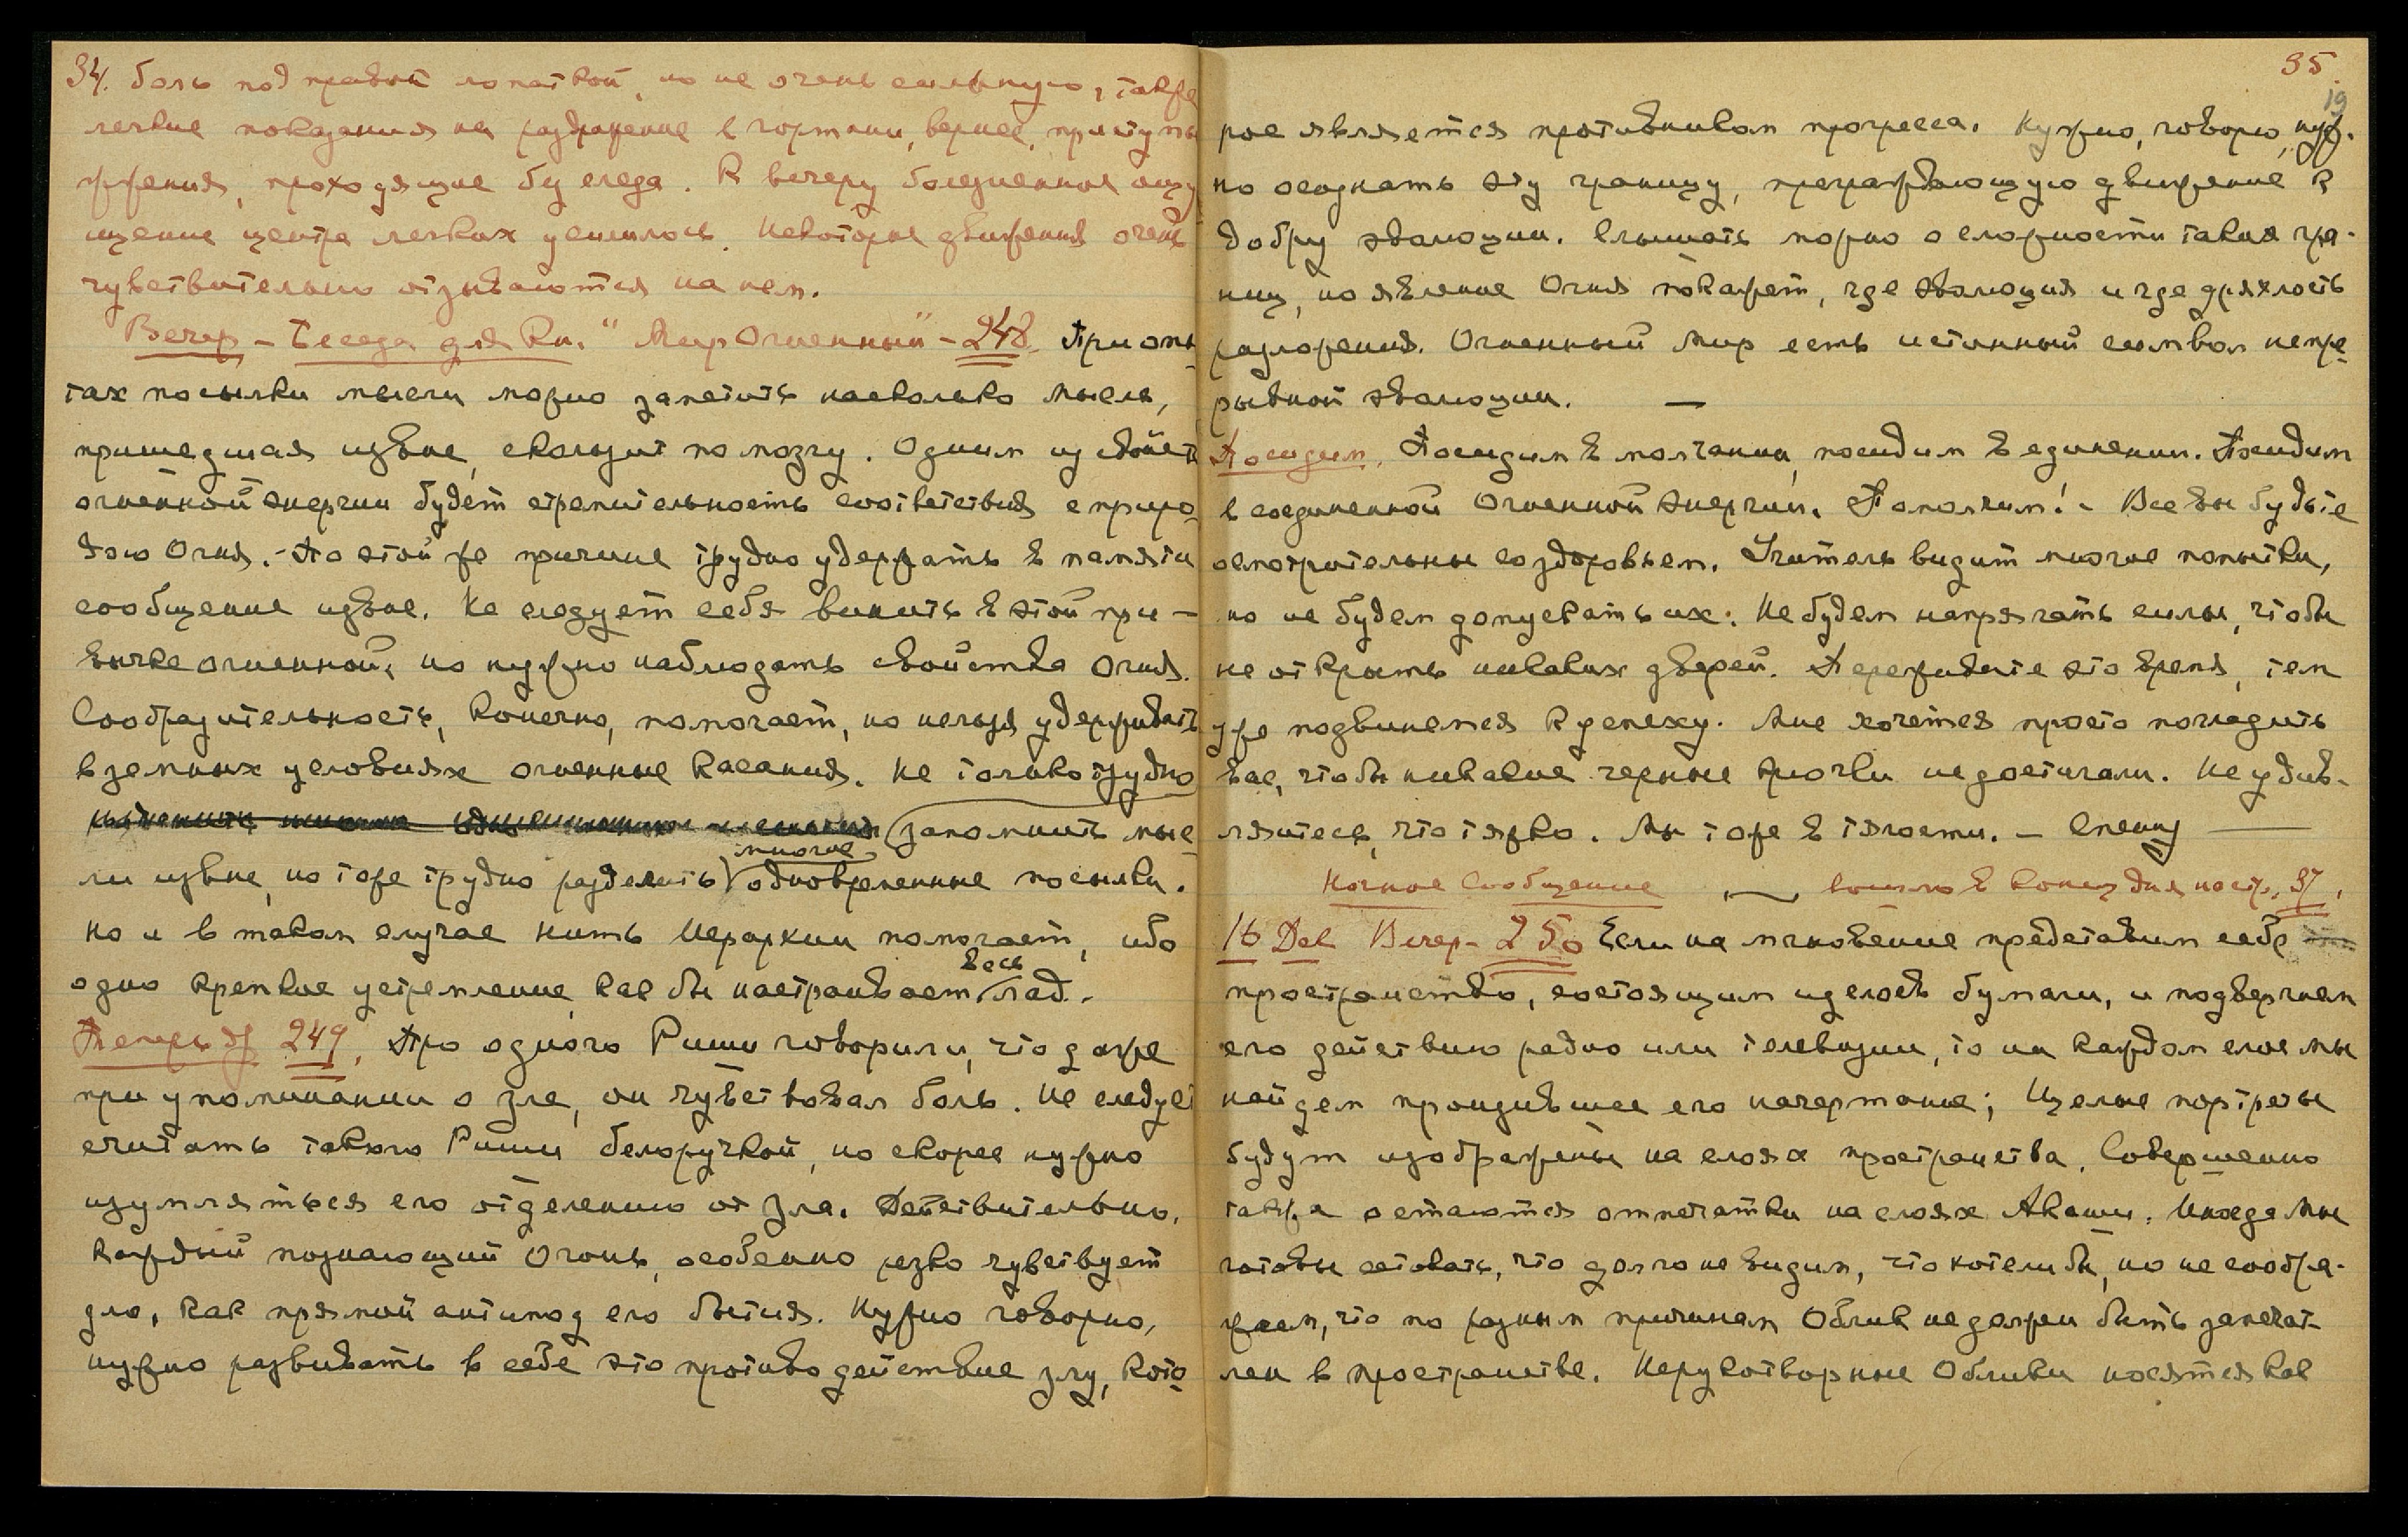 34. боль под правой лопаткой, но не очень сильную, также
легкие показания на раздражение в гортани, вернее, приступы
жжения, проходящие без следа. К вечеру болезненное ощу
щение центра легких усилилось. Некоторые движения очень
чувствительно отзываются на нем.
Вечер – Беседа для Кн. "Мир Огненный" – 248. При опы
тах посылки мысли можно заметить насколько мысль,
пришедшая извне, скользит по мозгу. Одним из свойств
огненной энергии будет стремительность соответствия с приро-
дою Огня. – По этой же причине трудно удержать в памяти
сообщение извне. Не следует себя винить в этой при –
вычке огненной, но нужно наблюдать свойства Огня.
Сообразительность, конечно, помогает, но нельзя удерживать
в земных условиях огненные касания. Не только трудно
запомнить мыс-
многие
ли извне, но тоже трудно разделить одновременные посылки.
Но и в таком случае нить Иерархии помогает, ибо
весь
одно крепкое устремление как бы настраивает лад.
Теперь 249. Про одного Риши говорили, что даже
при упоминании о зле, он чувствовал боль. Не следует
считать такого Риши белоручкой, но скорее нужно
изумляться его отделению от зла. Действительно,
каждый познающий Огонь, особенно резко чувствует
зло, как прямой антипод его бытия. Нужно говорю,
нужно развивать в себе это противодействие злу, кото
35.
19
рое является противником прогресса. Нужно, говорю, нуж-
но осознать эту границу, преграждающую движение к
добру эволюции. Слышать можно о сложности таких гра-
ниц, но явление Огня покажет, где эволюция и где дряхлость
разложения. Огненный Мир есть истинный символ непре-
рывной эволюции. —
Посидим. Посидим в молчании, посидим в единении. Посидим
в соединенной Огненной Энергии. Помолчим! – Все вы будьте
осмотрительны со здоровьем. Учитель видит многие попытки,
но не будем допускать их. Не будем напрягать силы, чтобы
не открыть никаких дверей. Переживите это время, тем
уже подвинемся к успеху. Мне хочется просто погладить
вас, чтобы никакие черные крючки не достигали. Не удив-
ляйтесь, что тяжко. Мы тоже в тягости. – Спешу —
Ночное Сообщение вошло в конец дня на стр. 37.
16 Дек Вечер – 250 Если на мгновение представим себе
пространство, состоящим из слоев бумаги, и подвергнем
его действию радио или телевизии, то на каждом слое мы
найдем пронизившее его начертание; Целые портреты
будут изображены на слоях пространства. Совершенно
также остаются отпечатки на слоях Акаши. Иногда мы
готовы сетовать, что долго не видим, что хотели бы, но не сообра-
жаем, что по разным причинам Облик не должен быть запечат-
лен в пространстве. Нерукотворные Облики носятся как